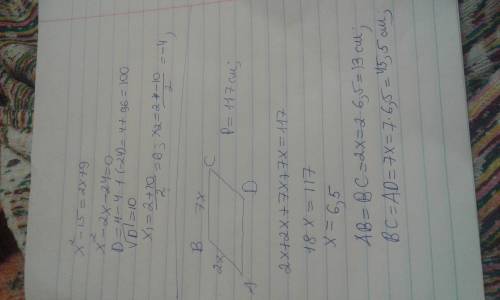 x² - 15 = 2x + 9
x² - 2x - 24 = 0
√D = 10
x₁ = 2 + 10 / 2 = 6; x₂ = 2 - 10 / 2 = -4;
B 7x C
2x P = 117 см;
A D
2x + 2x + 7x + 7x = 117
18x = 117
x = 6,5
AB = BC = 2x = 2 · 6,5 = 13 см;
BC = AD = 7x = 7 · 6,5 = 45,5 см;